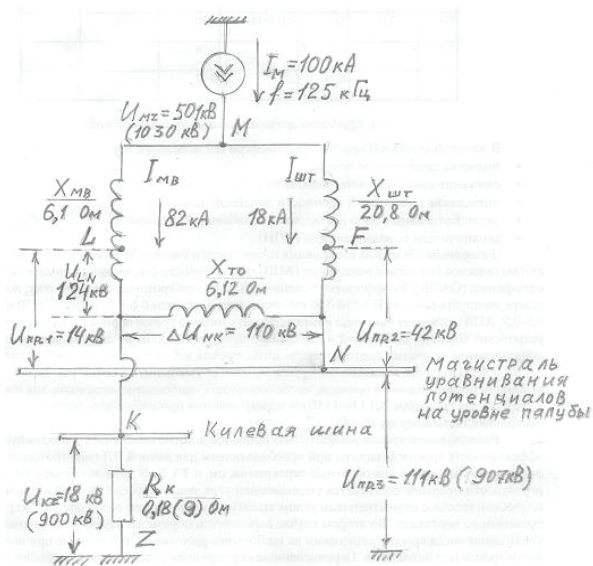 Iм = 100кА
f = 125 кГц
Uмz = 501кВ
(1030 кВ)
M
Iмв
Iшт
Xмв
6,1 Ом
Xшт
20,8 Ом
82кА
18кА
L
F
Xто
6,12 Ом
ULN
124кВ
Uпр.1 = 14кВ
ΔUNK = 110 кВ
Uпр2 = 42кВ
N
Магистраль
уравнивания
потенциалов
на уровне палубы
K
Килевая шина
Uкz = 18 кВ
(900кВ)
Rк
0,18(9) Ом
Uпр3 = 111кВ (907кВ)
Z